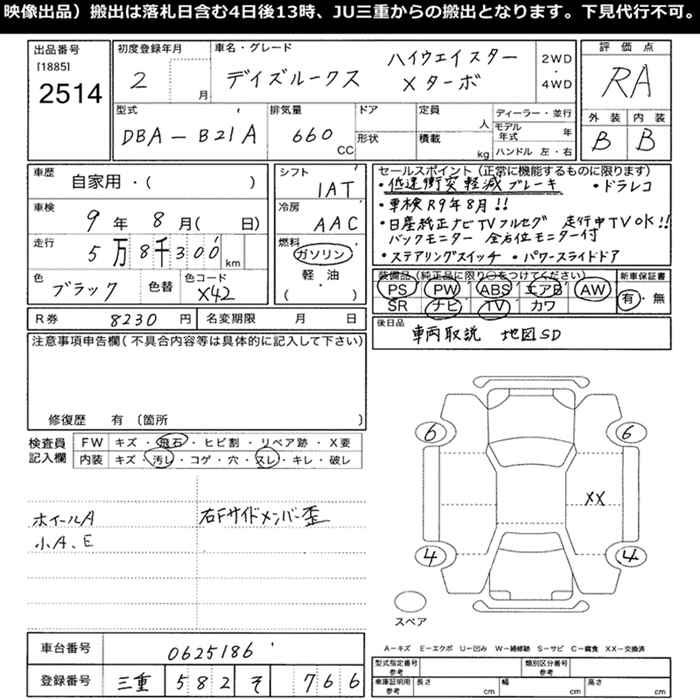 映像出品）搬出は落札日含む4日後13時、JU三重からの搬出となります。下見代行不可。
出品番号
[1885]
2514
初度登録年月
2 月
車名・グレード
デイズルークス ハイウエイスター
Xターボ
2WD
・
4WD
評価点
RA
外装 内装
B B
型式
DBA-B21A
排気量
660 CC
ドア
形状
定員
人
積載
kg
ディーラー・並行
モデル年式 年
ハンドル 左・右
車歴
自家用・( )
車検
9年8月( 日)
走行
5万8千300km
色
ブラック
色替
色コード
X42
シフト
IAT
冷房
AAC
燃料
ガソリン
・
軽・油
( )
セールスポイント(正常に機能するものに限ります)
・低速衝突軽減ブレーキ ・ドラレコ
・車検R9年8月!!
・日産純正ナビTVフルセグ 走行中TVOK!!
バックモニター 全方位モニター付
・ステアリングスイッチ ・パワースライドドア
装備品(純正品に限り○をつけてください)
新車保証書
PS PW ABS エアB AW
有・無
SR ナビ TV カワ
後日品
車両取説 地図SD
R券 8230円
名変期限 月 日
注意事項申告欄(不具合内容等は具体的に記入して下さい)
修復歴 有 〔箇所
検査員
記入欄
FW キズ・飛石・ヒビ割・リペア跡・X要
内装 キズ・汚レ・コゲ・穴・スレ・キレ・破レ
ホイールA
小A、E
右Fサイドメンバー歪
6 6
XX
4 4
スペア
A－キズ E－エクボ U－凹み W－補修跡 S－サビ C－腐食 XX－交換済
車台番号
0625186
登録番号
三重 582 そ 766
型式指定番号
参考
類別区分番号
参考
車庫証明用
参考
長さ cm
幅 cm
高さ cm